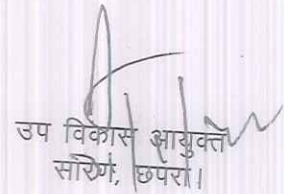 उप विकास आयुक्त
सारण, छपरा।